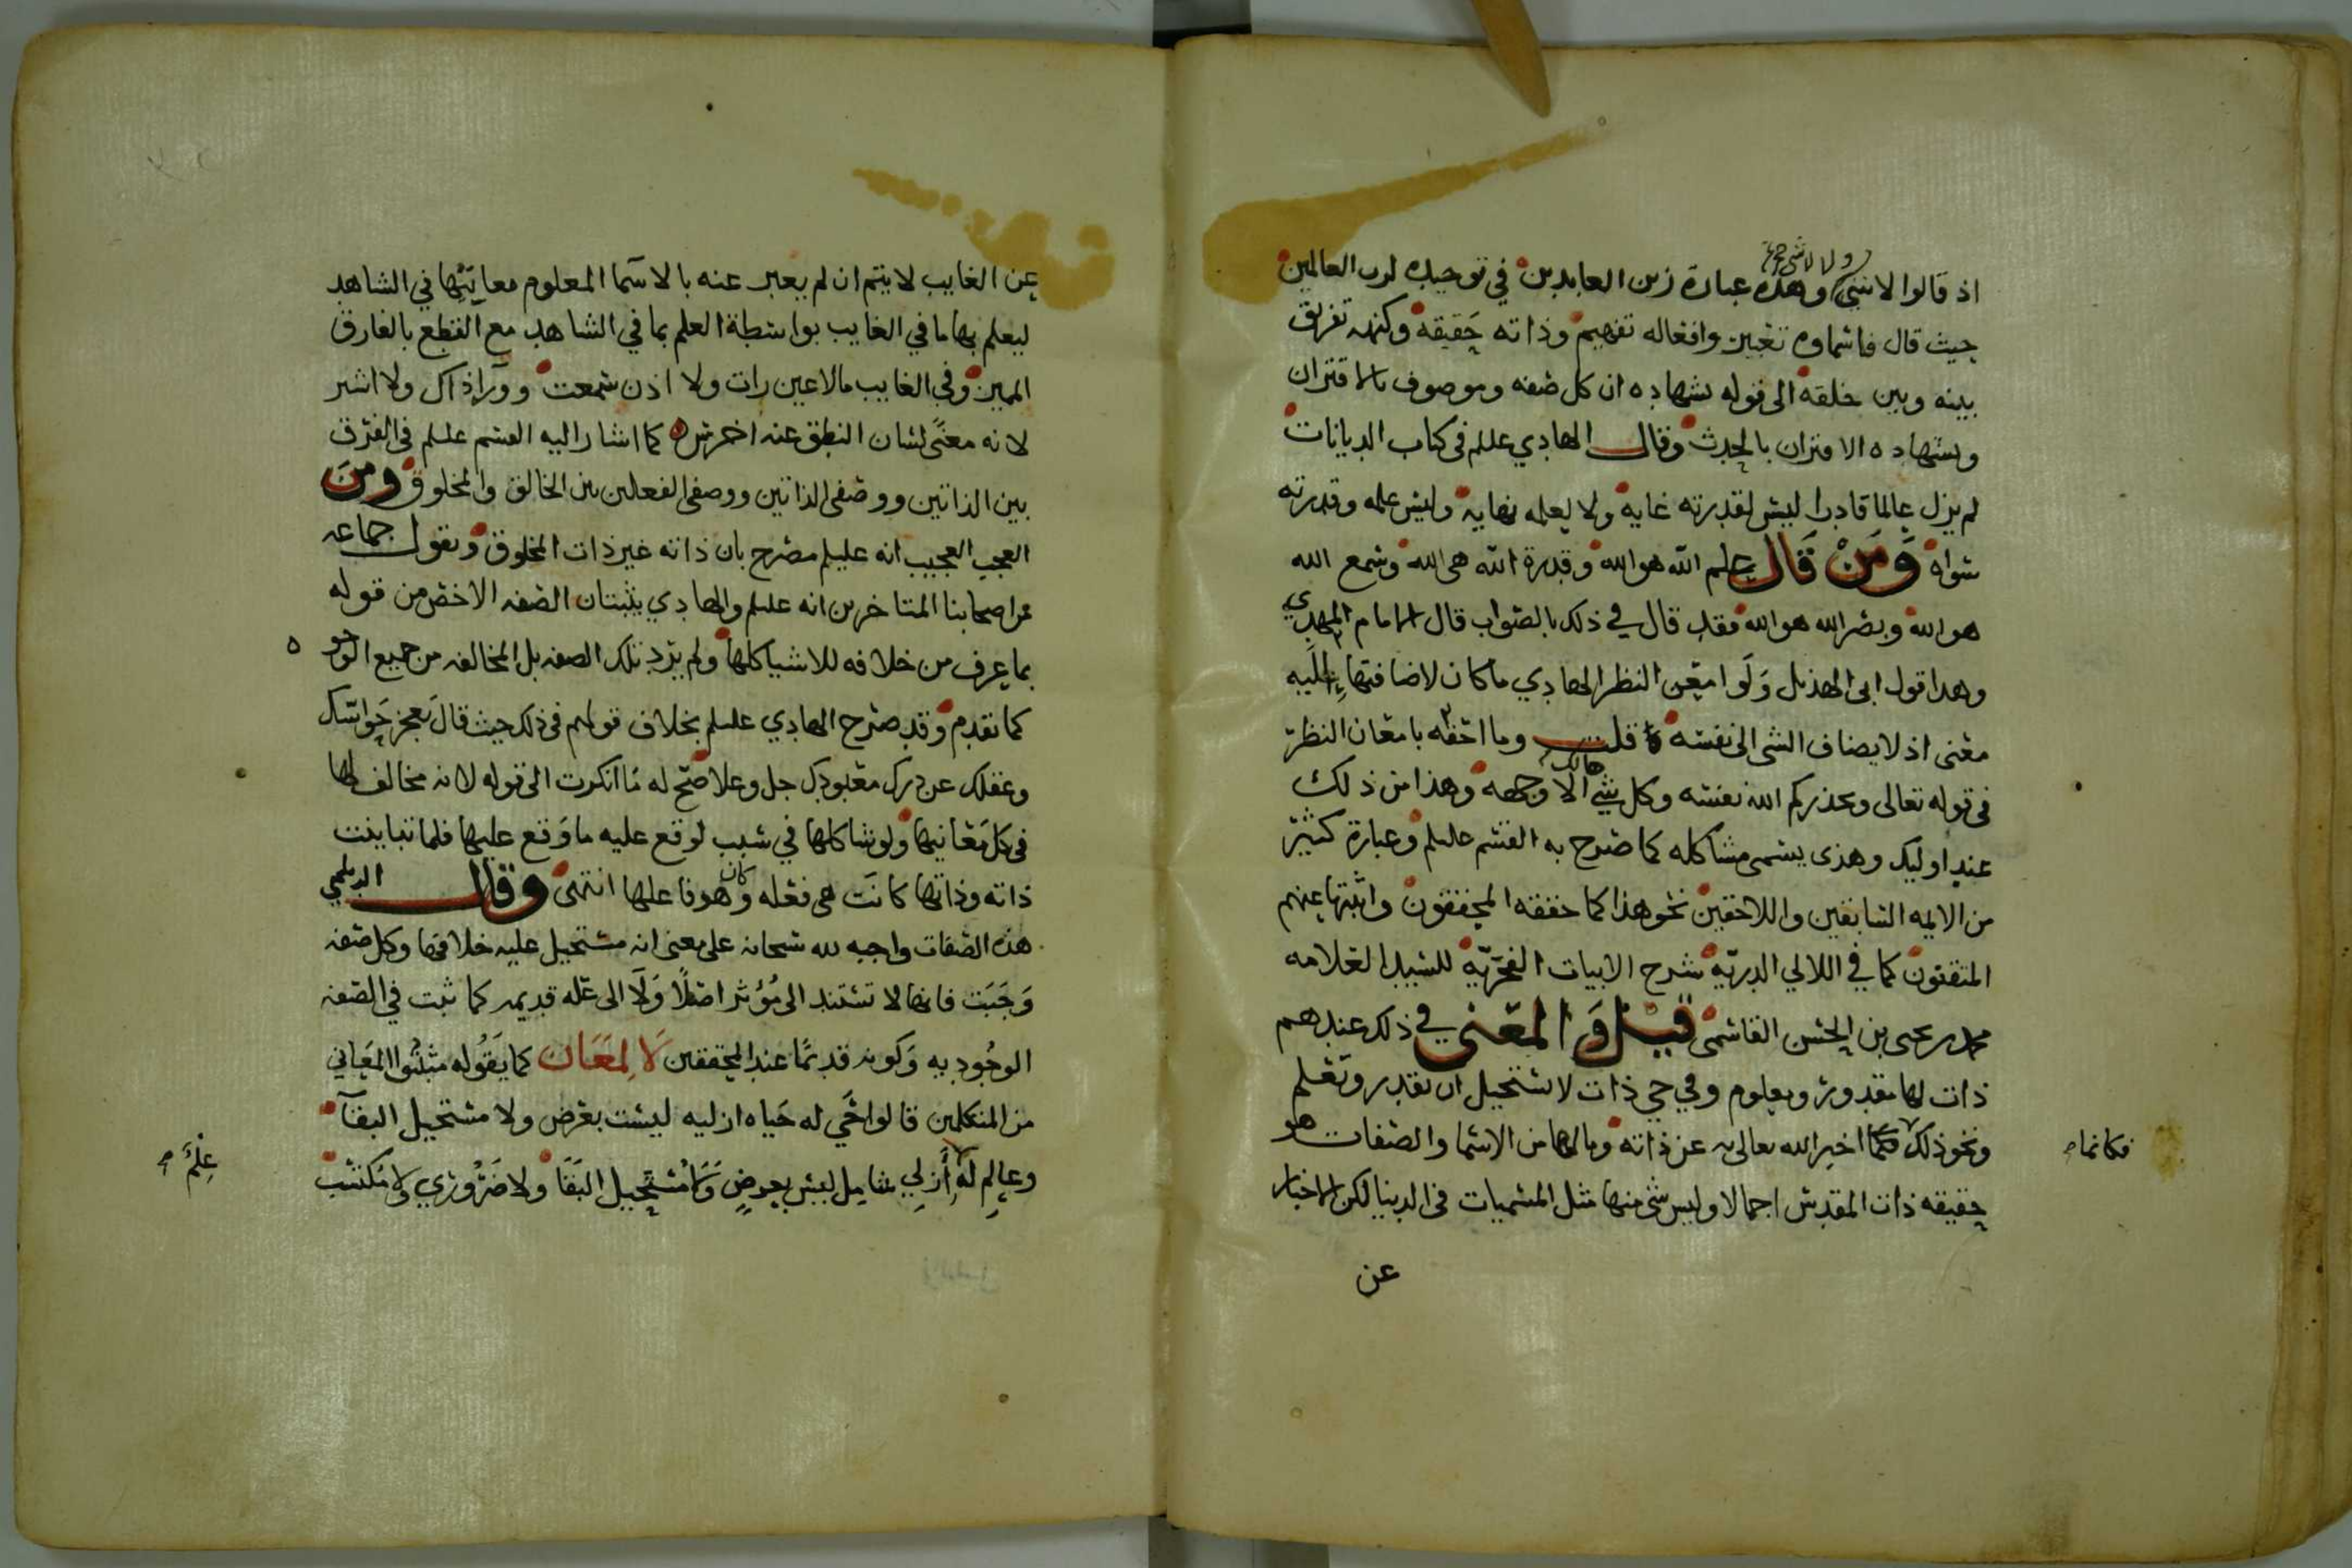 ولا لا شي صح
اذ قالوا لا شي وهذه عبارة زين العابدين في توحيده لرب العالمين
حيث قال فاسماوه تعبير وافعاله تفهيم وذاته حقيقة وكنهه تفريق
بينه وبين خلقه الى قوله بشهاده ان كل صفه وموصوف بالاقتران
وبشهاده الاقتران بالحدث وقال الهادي عليلم في كتاب الديانات
لم يزل عالما قادرا ليس لقدرته غاية ولا لعلمه نهاية وليس علمه وقدرته
سواه وَمَنْ قَال علم الله هو الله وقدرة الله هي الله وسمع الله
هو الله وبصر الله هو الله فقد قال في ذلك بالصواب قال الامام المهدي
وهذا قول ابي الهذيل وَلَو امعن النظر الهادي ما كان لاضافتها اِلَيه
معنى اذ لا يضاف الشي الى نفسه قلت وما احقه بامعان النظر
في قوله تعالى ويحذركم الله نفسه وكل شي هالك الا وجهه وهذا من ذلك
عند اوليك وهذى يسمى مشاكله كما صرح به القسم عليلم وعبارة كثير
من الايمه السابقين واللاحقين نحو هذا كما حققه المحققون واثبتها عنهم
المتقنون كما في اللالي الدريّة شرح الابيات الفخريّة للسيد العلامه
محمد بن يحيى بن الحسن القاسمى قيل وَ المعنى في ذلك عندهم
ذات لها مقدور ومعلوم وفي حي ذات لا يستحيل ان تقدر وتعلم
ونحو ذلك كما اخبر الله تعالى به عن ذاته وما لها من الاسما والصفات هو
فكانما صح
حقيقه ذات المقدس اجمالا وليس شي منها مثل المسميات في الدنيا لكن الاخبار
عن
عن الغايب لا يتم ان لم يعبر عنه بالاسما المعلوم معانيها في الشاهد
ليعلم بها ما في الغايب بواسطة العلم بما في الشاهد مع القطع بالفارق
المميز وفي الغايب ما لا عين رات ولا اذن سمعت وورآ ذاك ولا اشر
لانه معنًى لسان النطق عنه اخرس كما اشار اليه القسم عليلم في الفرق
بين الذاتين ووصفى الذاتين ووصفى الفعلين بين الخالق والمخلوق ومن
العجب العجيب انه عليلم مصرح بان ذاته غير ذات المخلوق ويقول جماعه
من اصحابنا المتاخرين انه عليلم والهادي يثبتان الصفه الاخص من قوله
بما عرف من خلافه للاشيا كلها ولم يرد تلك الصفه بل المخالفه من جميع الوجوه
كما تقدم وقد صرح الهادي عليلم بخلاف قولهم في ذلك حيث قال بعجز حواسك
وعقلك عن درك معبودك جل وعلا صح له ما انكرت الى قوله لانه مخالف لها
في كل معانيها ولو شاكلها في سبب لوقع عليه ما وَقع عليها فلما تباينت
ذاته وذاتها كانت هي فعله وكان هو فاعلها انتهى وقال الديلمي
هذه الصفات واجبه لله سبحانه على معنى انه مستحيل عليه خلافها وكل صفه
وَجَبَت فانها لا تستند الى مُؤثر اصلاً وَلَا الى علّه قديمه كما ثبت في الصفه
الوجُوديه وَكونه قديمًا عند المحققين لَا لِمَعَان كما يَقُوله مثبتُوا المعَاني
من المتكلمين قالوا حَي له حَياه ازليه ليست بعرض ولا مستحيل البقآ
وعالم له أَزلي شامل ليس بعرضٍ وَلا مُسْتحيل البَقَا ولا ضَرُوري ولا مكتسب
عِلْم صح